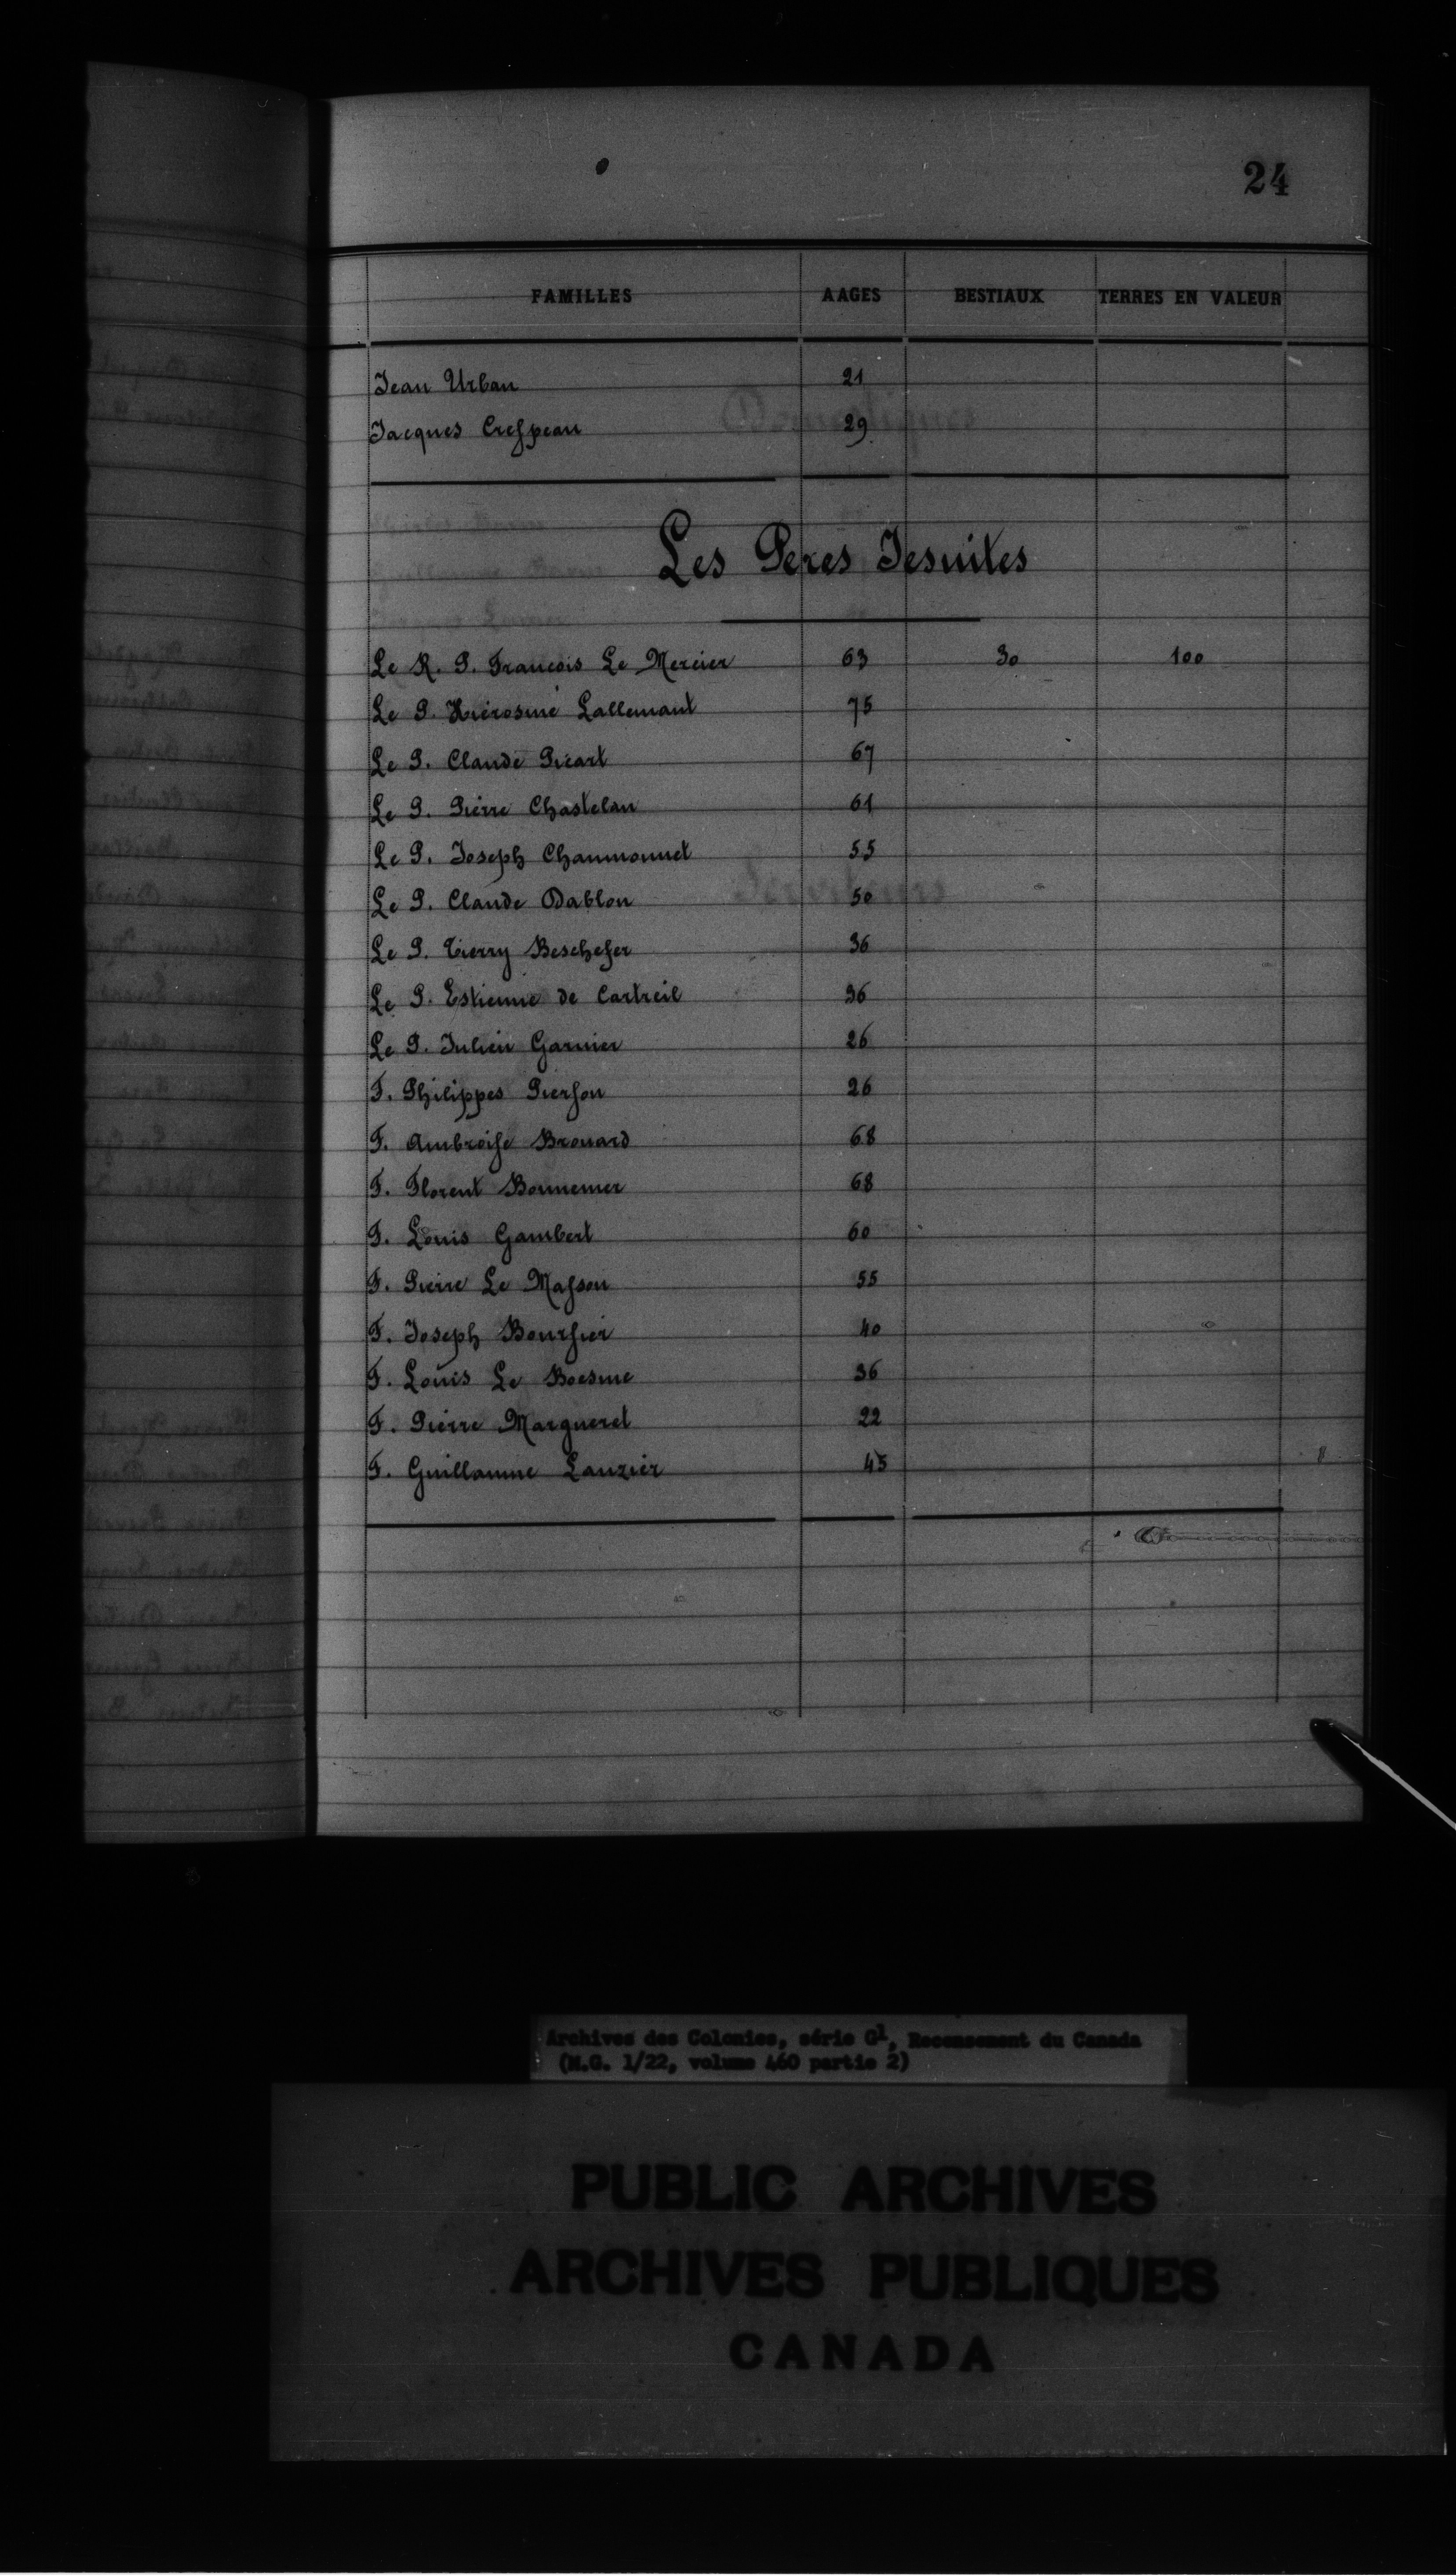 24
FAMILLES AAGES BESTIAUX TERRES EN VALEUR
Jean Urban 21
Jacques Creſpeau 29
Les Peres Jesuites
Le R. P. Francois Le Mercier 63 30 100
Le P. Hierosme Lallemant 75
Le P. Claude Picart 67
Le P. Pierre Chastelan 61
Le P. Joseph Chaumonnet 55
Le P. Claude Dablon 50
Le P. Tierry Beschefer 36
Le P. Estienne de Cartreil 36
Le P. Julien Garnier 26
F. Philippes Pierſon 26
F. Ambroiſe Brouard 68
F. Florent Bonnemer 68
F. Louis Gambert 60
F. Pierre Le Maſson 55
F. Joseph Bourſier 40
F. Louis Le Boesme 36
F. Pierre Margueret 22
F. Guillaume Lauzier 45
Archives des Colonies, série G1, Recensement du Canada
(M.G. 1/22, volume 460 partie 2)
PUBLIC ARCHIVES
ARCHIVES PUBLIQUES
CANADA